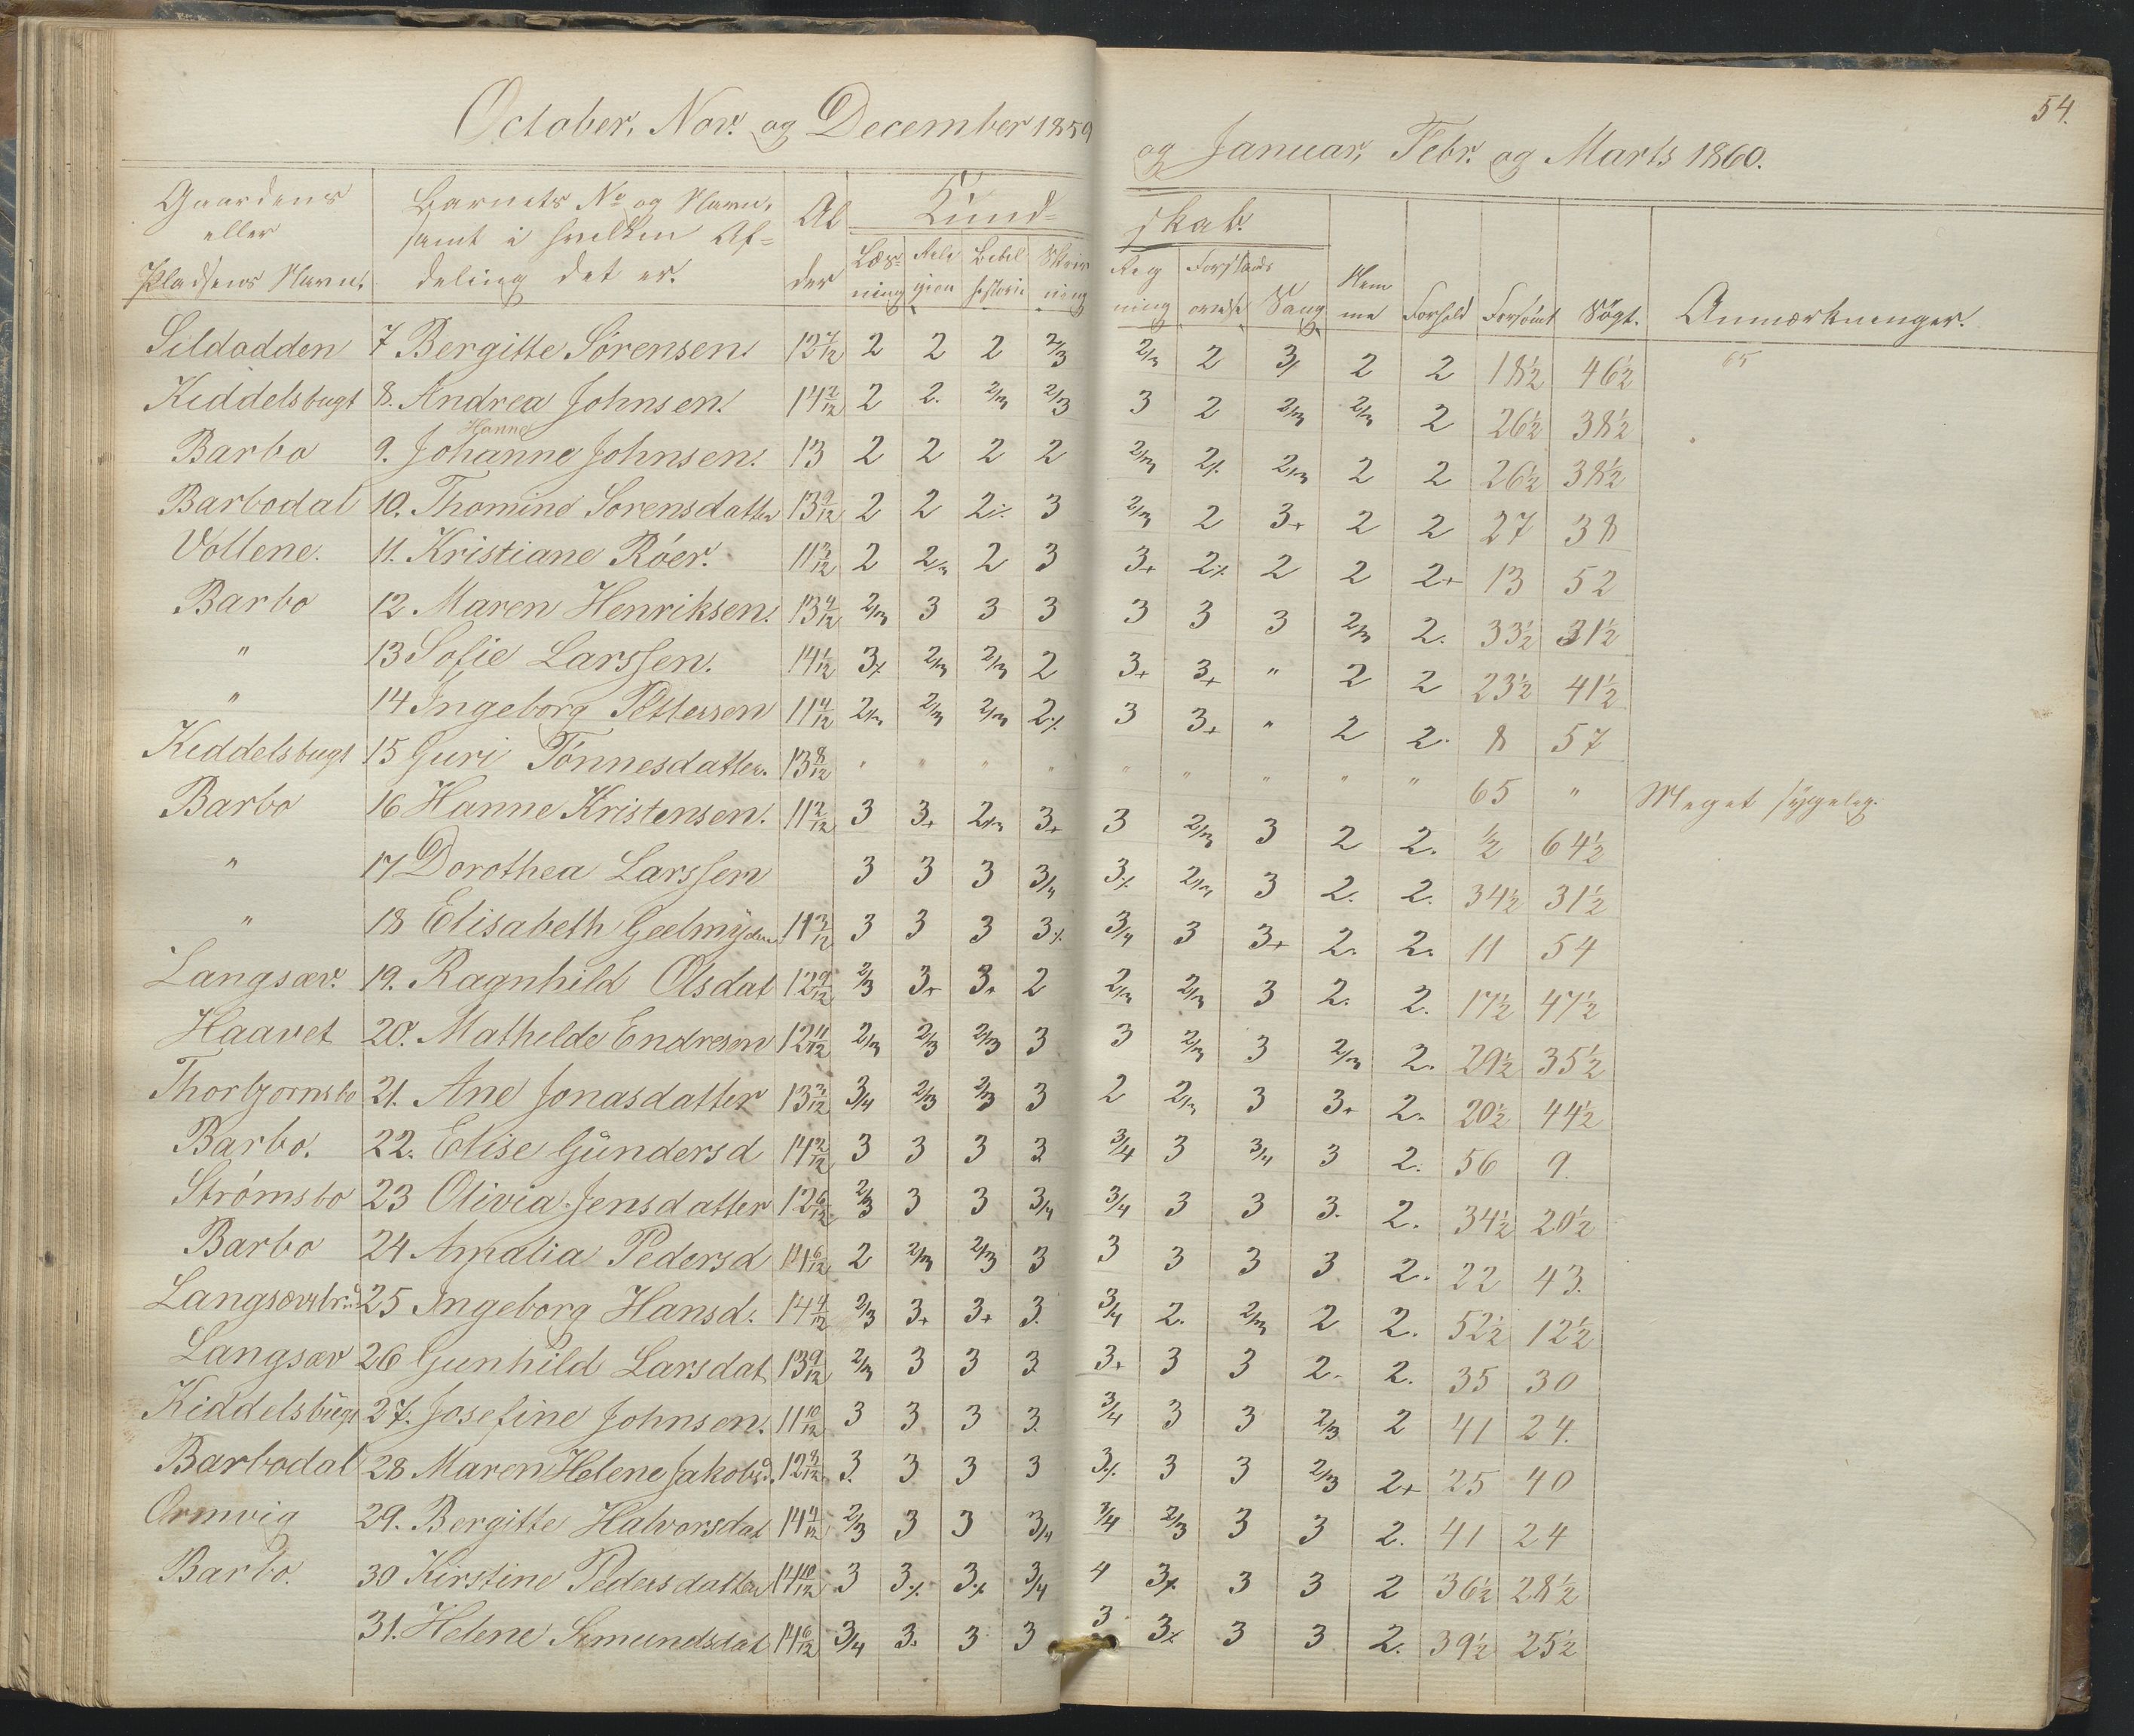 October, Nov. og December 1859
og Januar, Febr. og Marts 1860.
54.
Gaardens eller Pladsens Navn.
Barnets No og Navn, samt i hvilken Afdeling det er.
Alder
Kundskab.
Læsning Religion Bibelhistorie Skrivning Regning Forstandsøvelse Sang Nemme Forhold Forsømt Søgt. Anmærkninger.
Sildodden 7 Bergitte Sørensen. 12 7/12 2 2 2 2/3 2/3 2 3% 2 2 18½ 46½ 65
Kiddelsbugt 8. Andrea Johnsen. 14 2/12 2 2. 2/3 2/3 3 2 2/3 2/3 2 26½ 38½
Hanne
Barbo 9. Johanne Johnsen. 13 2 2 2 2 2/3 2% 2/3 2 2 26½ 38½
Barbodal 10. Thomine Sorensdatter 13 9/12 2 2 2% 3 2/3 2 3+ 2 2 27 38
Vollene. 11. Kristiane Röer. 11 3/12 2 2/3 2 3 3+ 2% 2 2 2+ 13 52
Barbo 12 Maren Henriksen. 13 4/12 2/3 3 3 3 3 3 3 2/3 2. 33½ 31½
" 13 Sofie Larssen. 14 1/12 3% 2/3 2/3 2 3+ 3+ " 2 2 23½ 41½
" 14 Ingeborg Pettersen 11 4/12 2/3 2/3 2/3 2% 3 3+ " 2 2. 8 57
Kiddelsbugt 15 Guri Tönnesdatter. 13 8/12 " " " " " " " " " 65 " Meget sygelig.
Barbo 16 Hanne Kristensen. 11 2/12 3 3+ 2/3 3+ 3 2/3 3 2 2. ½ 64½
" 17 Dorothea Larssen 3 3 3 3/4 3% 2/3 3 2. 2. 34½ 31½
" 18 Elisabeth Geelmÿden 11 3/12 3 3 3 3% 3/4 3 3+ 2. 2. 11 54
Langsæv. 19. Ragnhild Olsdat 12 9/12 2/3 3+ 3+ 2 2/3 2/3 3 2. 2. 17½ 47½
Haavet 20. Mathilde Endresen 12 11/12 2/3 2/3 2/3 3 3 2/3 3 2/3 2. 29½ 35½
Thorbjornsbo 21. Ane Jonasdatter 13 3/12 3/4 2/3 2/3 3 2 2/3 3 3+ 2. 20½ 44½
Barbo. 22. Elise Gundersd 14 2/12 3 3 3 3 3/4 3 3/4 3 2. 56 9.
Strømsbo 23 Olivia Jensdatter 12 6/12 2/3 3 3 3/4 3/4 3 3 3. 2. 34½ 20½
Barbo 24 Amalia Pedersd 14 6/12 2 2/3 2/3 3 3 3 3 3 2. 22 43.
25 Ingeborg Hansd. 14 4/12 2/3 3+ 3+ 3. 3/4 2. 2/3 2 2. 52½ 12½
Langsæv 26 Gunhild Larsdat 13 9/12 2/3 3 3 3 3+ 3 3 2. 2. 35 30
Kiddelsbugt 27. Josefine Johnsen. 11 10/12 3 3 3 3. 3/4 3 3 2/3 2 41 24.
Barbodal 28 Maren Helene Jakobsd. 12 9/12 3. 3 3 3 3% 3 3 2/3 2+ 25 40
Ormvig 29. Bergitte Halvorsdat 14 4/12 2/3 3 3 3/4 3/4 2/3 3 3 2. 41 24
Barbo. 30 Kirstine Pedersdatter 14 10/12 3 3% 3% 3/4 4 3% 3 3 2 36½ 28½
31. Helene Semundsdat 14 6/12 3/4 3. 3 3 3 3% 3 3 2. 39½ 25½